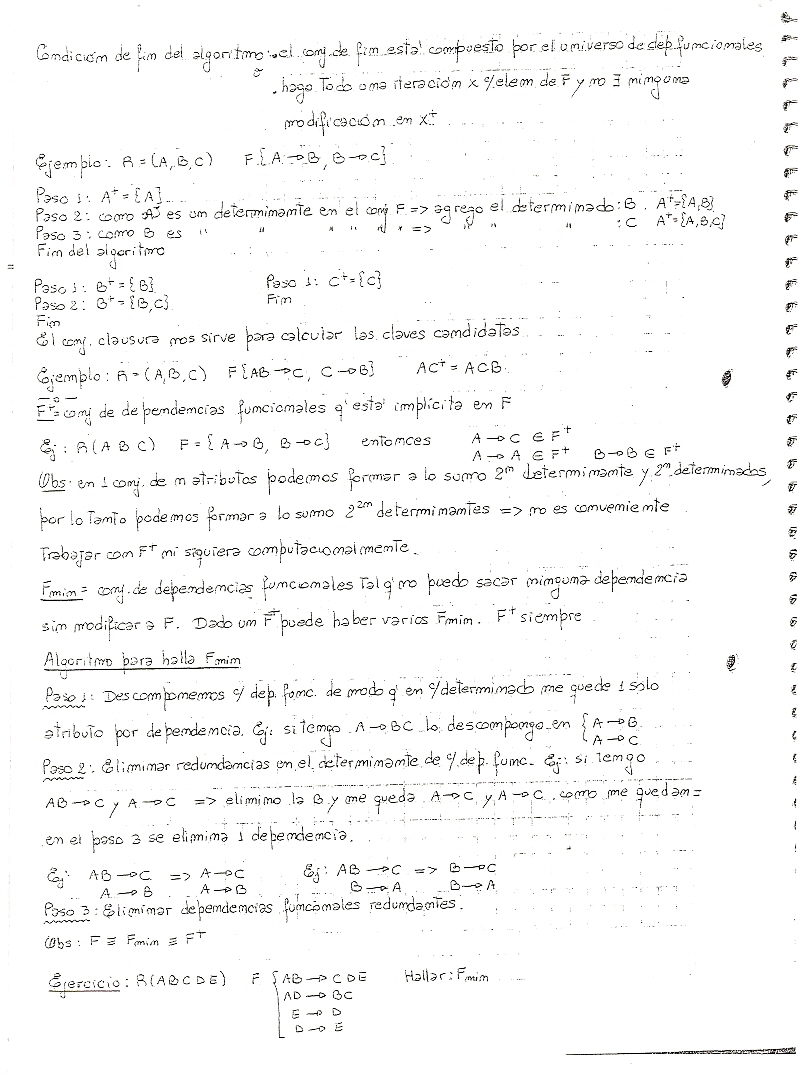 Condición de fin del algoritmo: . el conj. de fim está compuesto por el universo de dep. funcionales
ó . hago todo una iteración x c/elem de F y no ∃ ninguna
modificación en X⁺
Ejemplo: R = (A, B, C) F {A → B, B → C}
Paso 1: A⁺ = {A}
Paso 2: como A es un determinante en el conj F => agrego el determinado: B. A⁺ = {A,B}
Paso 3: como B es " " " " " " => " " " : C A⁺ = {A,B,C}
Fin del algoritmo
Paso 1: B⁺ = {B} Paso 1: C⁺ = {C}
Paso 2: B⁺ = {B,C} Fin
Fin
El conj. clausura nos sirve para calcular las claves candidatas
Ejemplo: R = (A, B, C) F {AB → C, C → B} AC⁺ = ACB
F⁺ = conj de dependencias funcionales q' está implícita en F
Ej: R(A B C) F = {A → B, B → C} entonces A → C ∈ F⁺
A → A ∈ F⁺ B → B ∈ F⁺
Obs: en 1 conj. de n atributos podemos formar a lo sumo 2ⁿ determinante y 2ⁿ determinados,
por lo tanto podemos formar a lo sumo 2²ⁿ determinantes => no es conveniente
trabajar con F⁺ ni siquiera computacionalmente.
Fmin = conj. de dependencias funcionales tal q' no puedo sacar ninguna dependencia
sin modificar a F. Dado un F⁺ puede haber varios Fmin. F⁺ siempre
Algoritmo para halla Fmin
Paso 1: Descomponemos c/ dep. func. de modo q' en c/determinado me quede 1 solo
atributo por dependencia. Ej: si tengo A → BC lo descompongo en { A → B
A → C
Paso 2: Eliminar redundancias en el determinante de c/ dep. func. Ej: si tengo
AB → C y A → C => elimino la B y me queda A → C y A → C como me quedan =
en el paso 3 se elimina 1 dependencia.
Ej: AB → C => A → C Ej: AB → C => B → C
A → B A → B B → A B → A
Paso 3: Eliminar dependencias funcionales redundantes.
Obs: F ≡ Fmin ≡ F⁺
Ejercicio: R(A B C D E) F { AB → C D E Hallar: Fmin
AD → BC
E → D
D → E